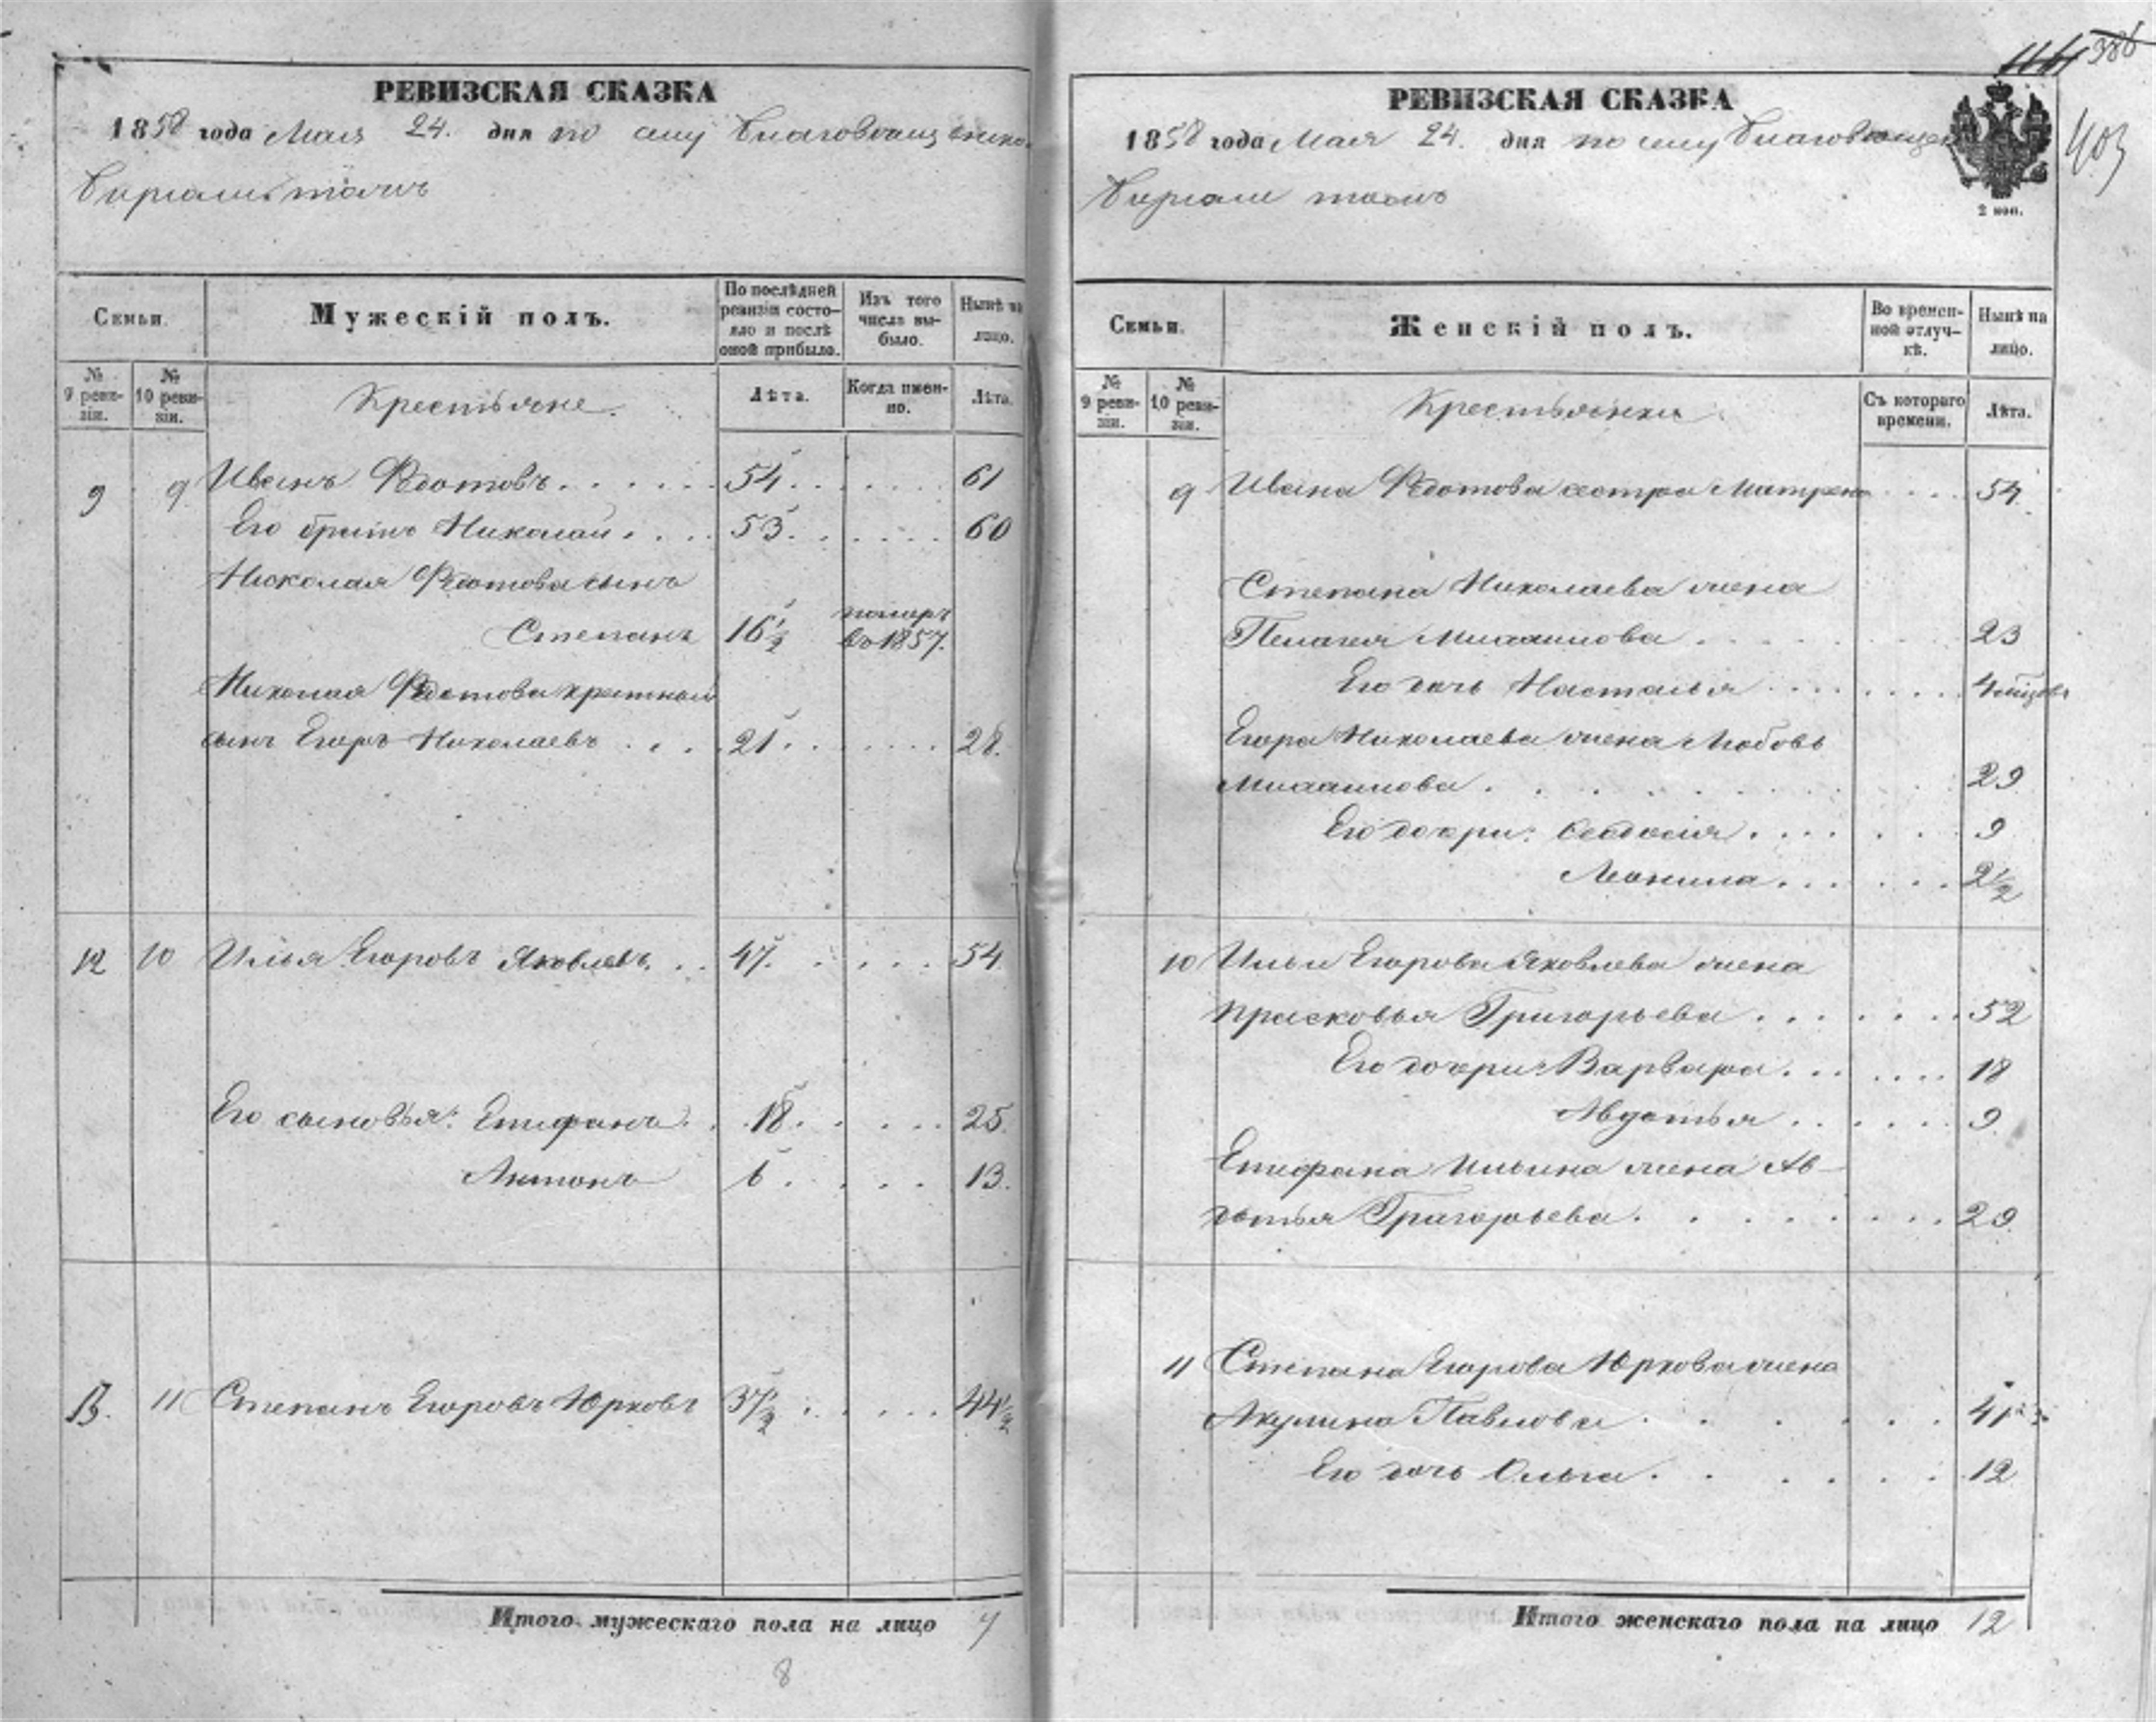 РЕВИЗСКАЯ СКАЗКА
1858 года Мая 24. дня по селу Благовещенско
Бирюли тожъ
Семьи.
Мужескій полъ.
По послѣдней ревизіи состояло и послѣ оной прибыло.
Изъ того числа выбыло.
Нынѣ на лицо.
№ 9 ревизіи.
№ 10 ревизіи.
Крестьяне.
Лѣта.
Когда именно.
Лѣта.
9 9 Иванъ Федотовъ 54 61
Его братъ Николай 53 60
Николая Федотова сынъ
Степанъ 16 1/2 померъ въ 1857.
Николая Федотова
сынъ Егоръ Николаевъ 21 28.
12 10 Илья Егоровъ Яковлевъ 47. 54
Его сыновья: Епифанъ 18. 25.
Антонъ 6 13.
13. 11 Степанъ Егоровъ Юрковъ 37 1/2 44 1/2
Итого мужескаго пола на лицо 7
8
386
403
РЕВИЗСКАЯ СКАЗКА
1858 года Мая 24. дня по селу Благовещен
тожъ
2 коп.
Семьи.
Женскій полъ.
Во временной отлучкѣ.
Нынѣ на лицо.
№ 9 ревизіи.
№ 10 ревизіи.
Крестьянки
Съ котораго времени.
Лѣта.
9 Ивана Федотова сестра Матрена 54
Степана Николаева жена
Пелагея Михаилова 23
Его дочь Насталья 4 мѣсяцъ
Егора Николаева жена Любовь
Михаилова 29
Его дочри: Феодосія 9
Леонила 2 1/2
10 Ильи Егорова Яковлева жена
Прасковья Григорьева 52
Его дочри: Варвара 18
Авдотья 9
Епифана Ильина жена Ав-
дотья Григорьева 29.
11 Степана Егорова Юркова жена
Акулина Павлова 41
Его дочь Ольга 12
Итого женскаго пола на лицо 12